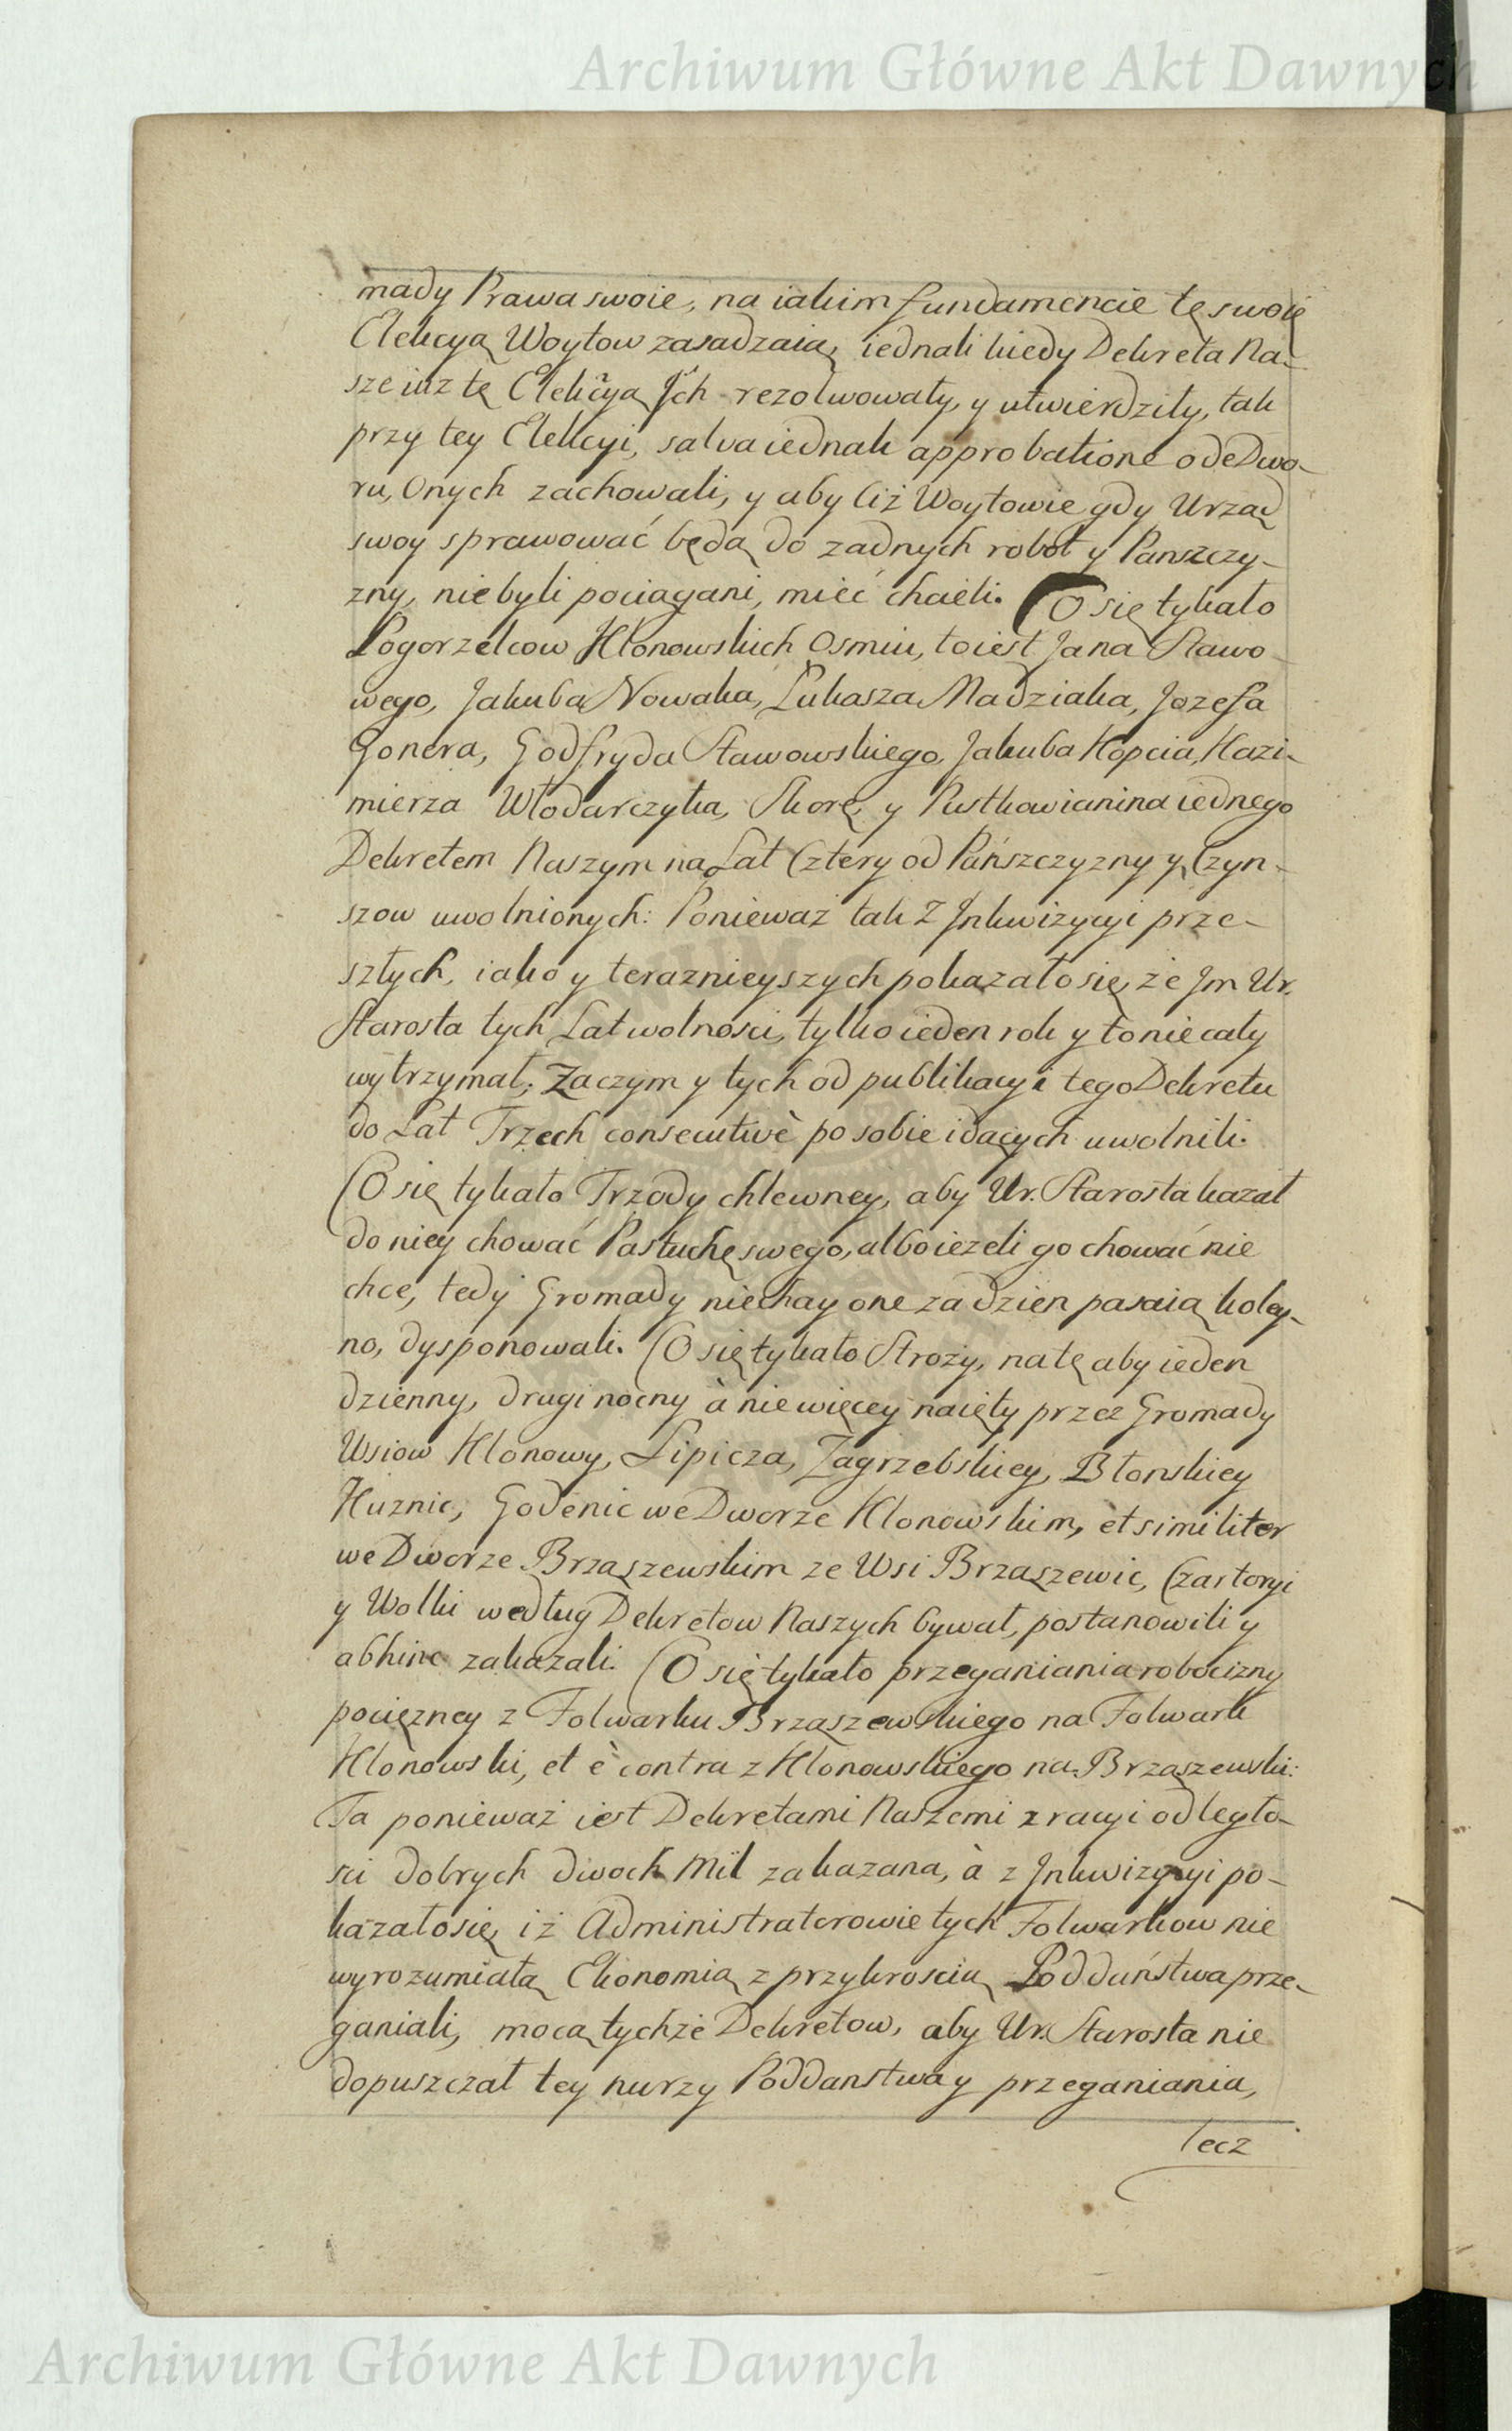 Archiwum Główne Akt Dawnych
mady Prawa swoie, na iakim fundamencie tę swoię
Elekcyą Woytow zasadzaią, iednak kiedy Dekreta Na-
sze iuz tę Elekcyą Jch rezolwowały, y utwierdziły, tak
przy tey Elekcyi, salva iednak approbatione ode Dwo-
ru, Onych zachowali, y aby Ciż Woytowie gdy Urząd
swoy sprawować będą do zadnych robot y Panszczy-
zny, nie byli pociągani, mieć chcieli. Co się tykało
Pogorzelcow Klonowskich Osmiu, to iest Jana Stawo-
wego, Jakuba Nowaka, Łukasza Madziaka, Jozefa
Gonera, Godfryda Stawowskiego, Jakuba Kopcia, Kazi-
mierza Włodarczyka, Skorę, y Pustkowianina iednego
Dekretem Naszym na Lat Cztery od Pańszczyzny y Czyn-
szow uwolnionych: Ponieważ tak z Jnkwizycyi prze-
szłych, iako y teraznieyszych pokazało się, że Jm Ur.
Starosta tych Lat wolności, tylko ieden rok y to nie cały
wytrzymał; Zaczym y tych od publikacyi tego Dekretu
do Lat Trzech consecutivè po sobie idących uwolnili.
Co się tykało Trzody chlewney, aby Ur. Starosta kazał
do niey chować Pastuchę swego, albo iezeli go chować nie
chce, tedy Gromady niechay one za dzien pasaią koley-
no, dysponowali. Co się tykało Strozy, na tę aby ieden
dzienny, drugi nocny à nie więcey naięty przez Gromady
Wsiow Klonowy, Lipicza, Zagrzebskiey, Błonskiey
Kuznic, Godenic we Dworze Klonowskim, et similiter
we Dworze Brząszewskim ze Wsi Brząszewic, Czartoryi
y Wolki według Dekretow Naszych bywał, postanowili y
abhinc zakazali. Co się tykało przeganiania robocizny
pociężney z Folwarku Brząszewskiego na Folwark
Klonowski, et è contra z Klonowskiego na Brząszewski:
Ta ponieważ iest Dekretami Naszemi z racyi odległo-
ści dobrych dwoch Mil zakazana, à z Jnkwizycyi po-
kazało się, iż Administratorowie tych Folwarkow nie
wyrozumiałą Ekonomią z przykroscią Poddaństwa prze-
ganiali, mocą tychże Dekretow, aby Ur. Starosta nie
dopuszczał tey kurzy Poddanstwa y przeganiania,
lecz
Archiwum Główne Akt Dawnych